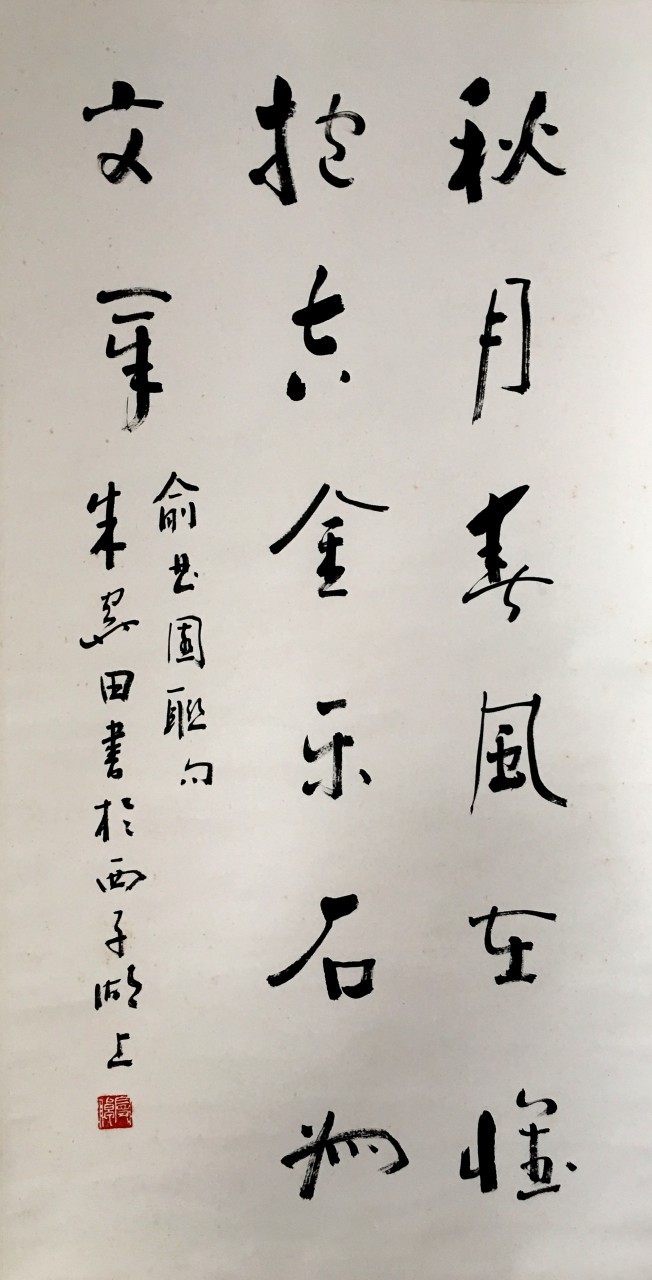 秋月春風在懷
抱吉金乐石為
文章
俞曲園聯句
朱關田書於西子湖上